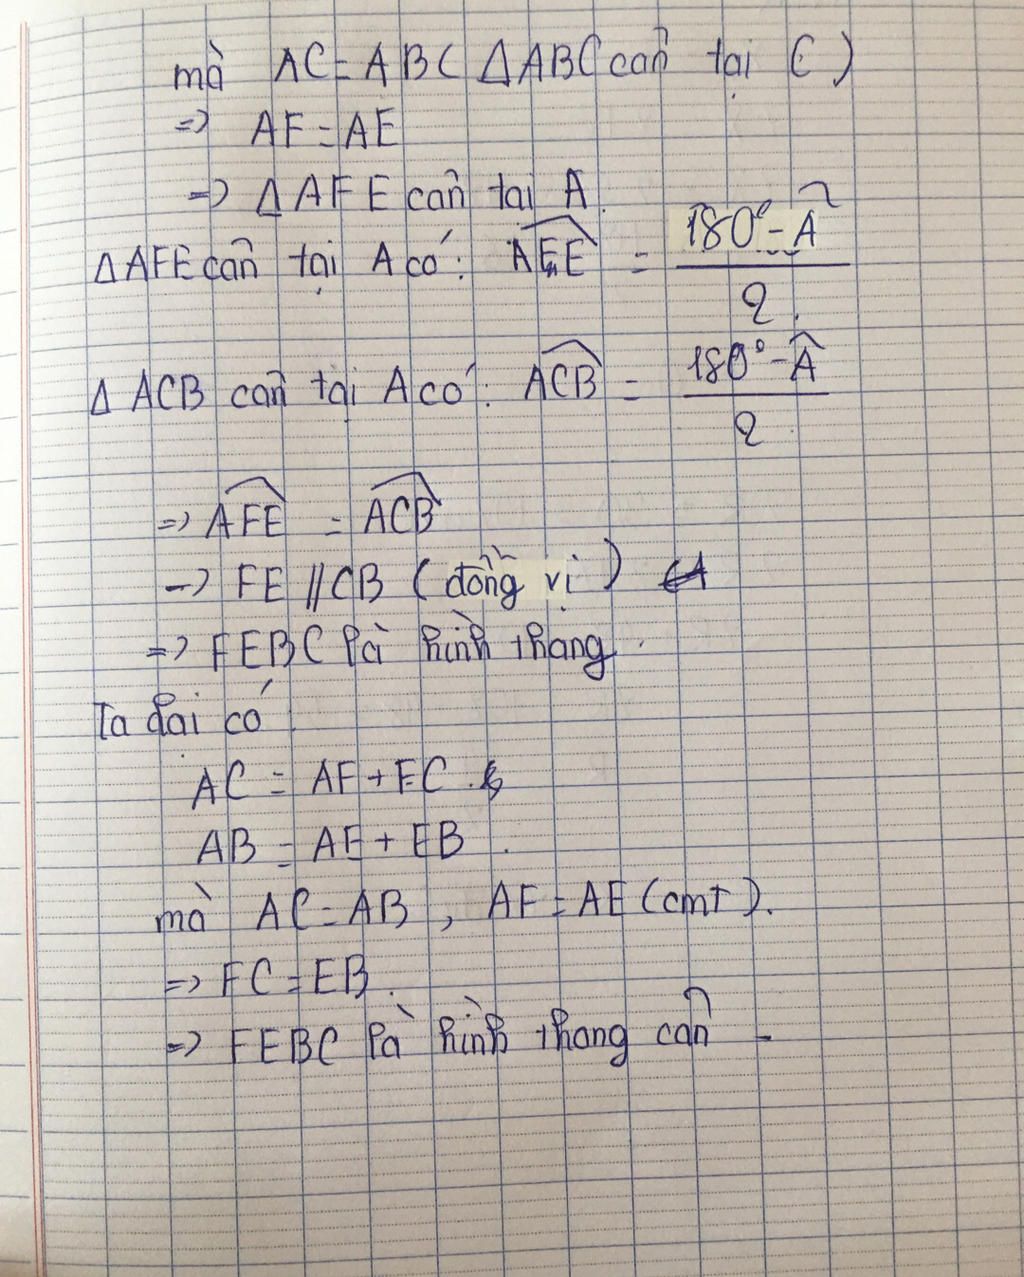 mà AC = AB ( Δ ABC cân tại C )
=> AF = AE
=> Δ AFE cân tại A.
Δ AFE cân tại A có: AFE = 180° - Â / 2.
Δ ACB cân tại A có: ACB = 180° - Â / 2
=> AFE = ACB
-> FE // CB ( đồng vị )
=> FEBC là hình thang.
Ta lại có
AC = AF + FC.
AB = AE + EB.
mà AC = AB , AF = AE (cmt).
=> FC = EB.
=> FEBC là hình thang cân -